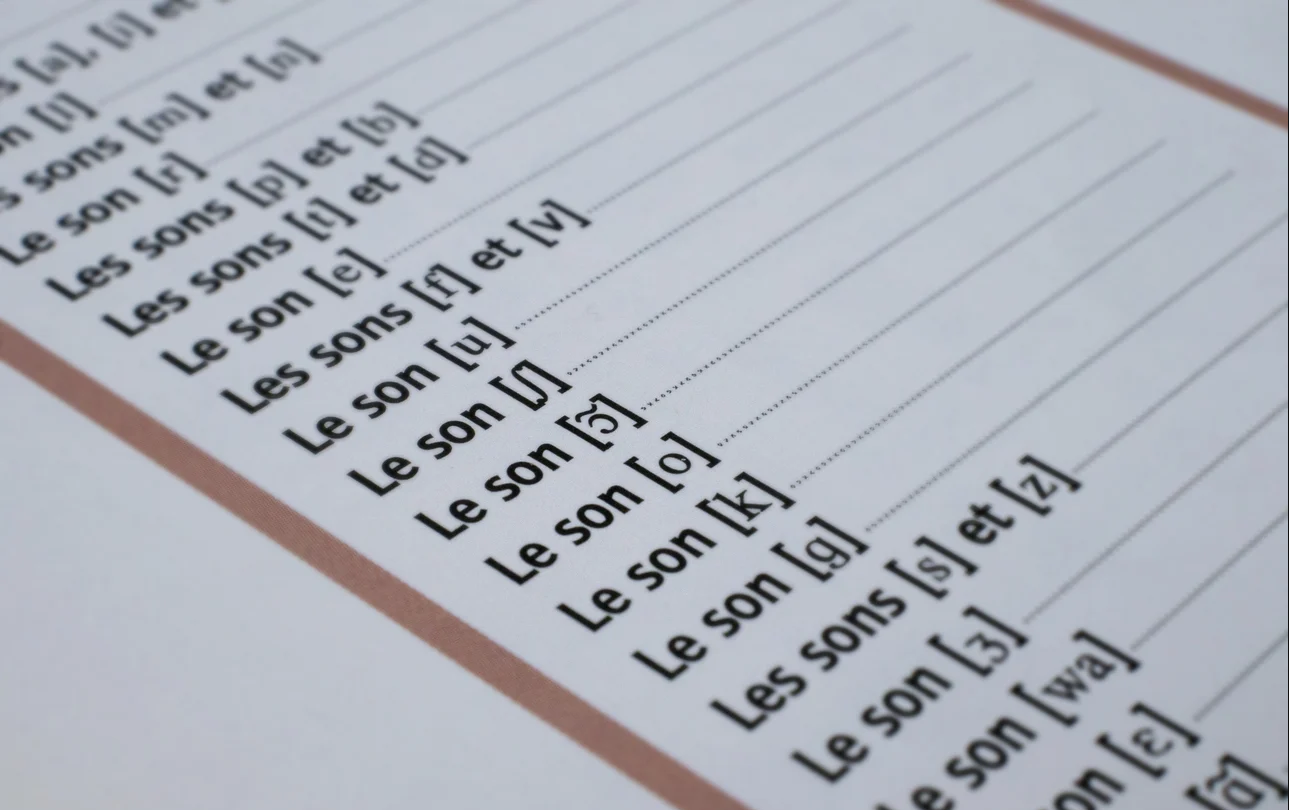 [a], [i] et
[l]
sons [m] et [n]
Le son [r]
Les sons [p] et [b]
Les sons [t] et [d]
Le son [e]
Les sons [f] et [v]
Le son [u]
Le son [ʃ]
Le son [ɔ̃]
Le son [o]
Le son [k]
Le son [g]
Les sons [s] et [z]
Le son [ʒ]
son [wa]
[ɛ]
[ɑ̃]